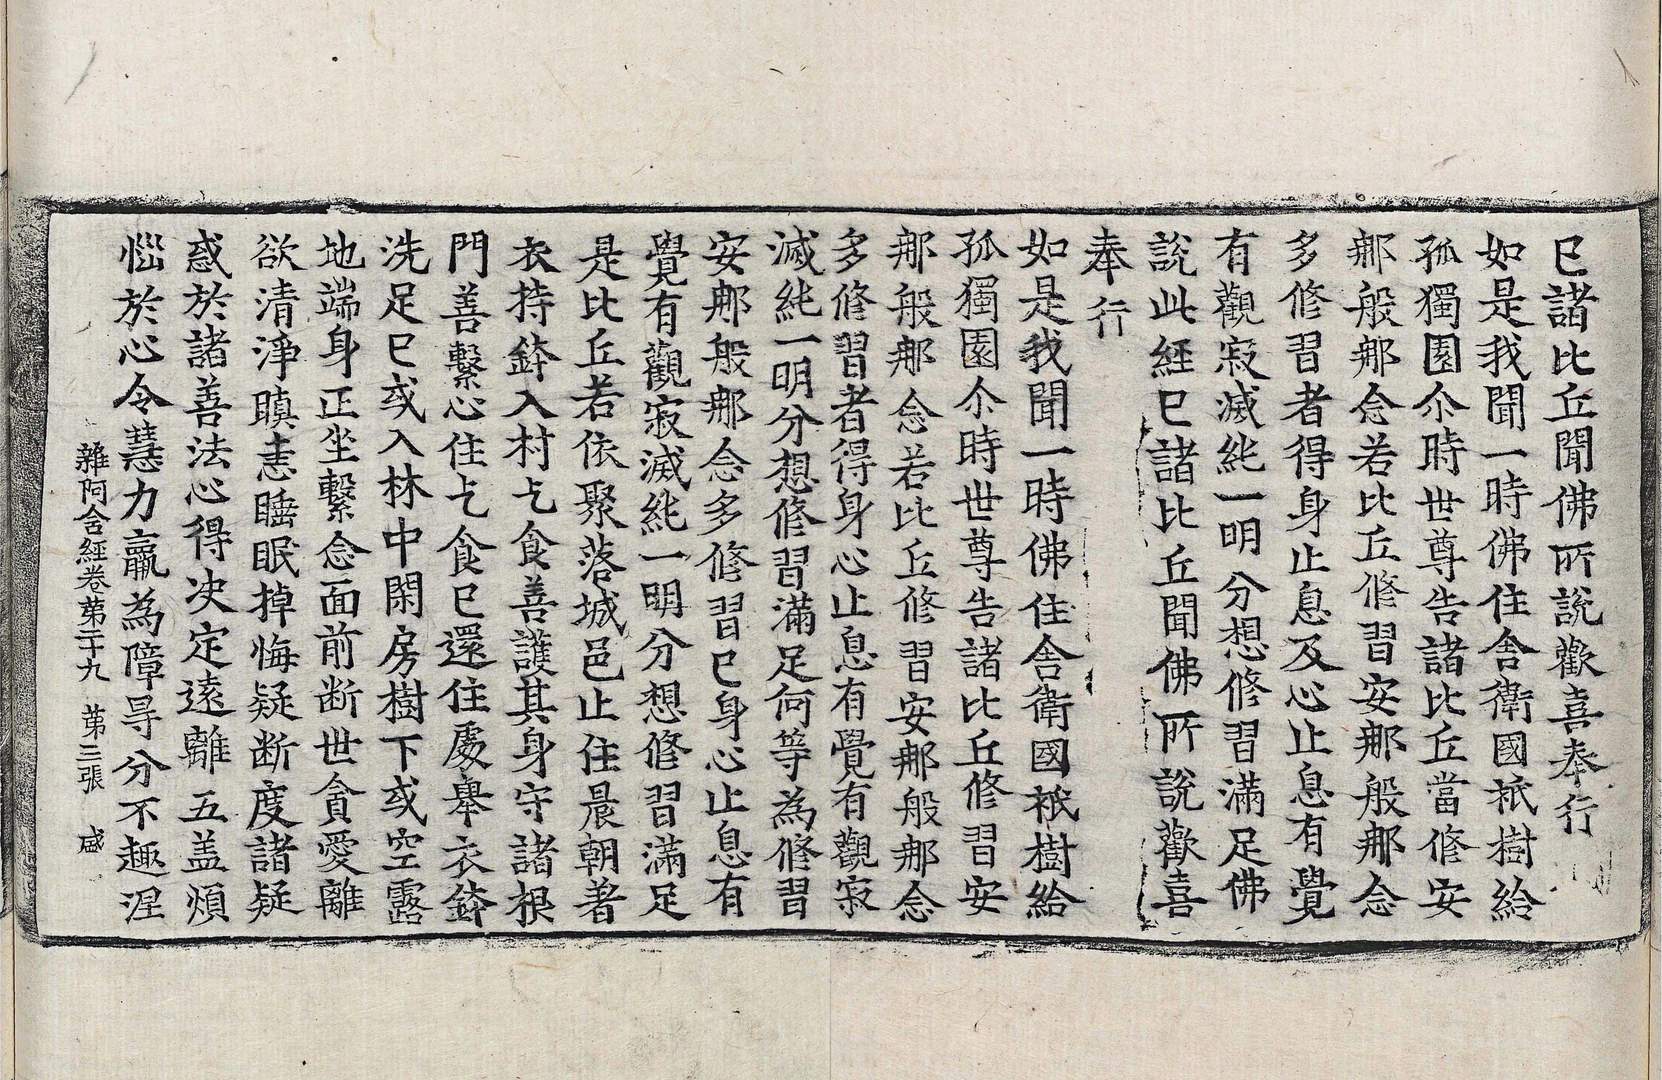 已諸比丘聞佛所說歡喜奉行
如是我聞一時佛住舍衛國祇樹給
孤獨園尒時世尊告諸比丘當修安
那般那念若比丘修習安那般那念
多修習者得身止息及心止息有覺
有觀寂滅純一明分想修習滿足佛
說此經已諸比丘聞佛所說歡喜
奉行
如是我聞一時佛住舍衛國祇樹給
孤獨園尒時世尊告諸比丘修習安
那般那念若比丘修習安那般那念
多修習者得身心止息有覺有觀寂
滅純一明分想修習滿足何等為修習
安那般那念多修習已身心止息有
覺有觀寂滅純一明分想修習滿足
是比丘若依聚落城邑止住晨朝著
衣持鉢入村乞食善護其身守諸根
門善繫心住乞食已還住處舉衣鉢
洗足已或入林中閑房樹下或空露
地端身正坐繫念面前断世貪愛離
欲清淨瞋恚睡眠掉悔疑断度諸疑
惑於諸善法心得决定遠離五盖煩
惱於心令慧力羸為障㝵分不趣涅
雜阿含經卷苐二十九 苐三張 盛